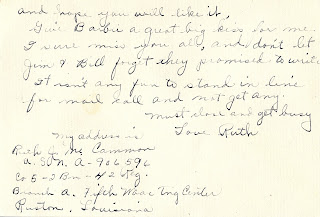 and hope you will like it.
Give Barbie a great big kiss for me.
I sure miss you all, and don't let
Jim & Bill forget they promised to write
It isn't any fun to stand in line
for mail call and not get any.
must close and get busy
Love Ruth
My address is
Ruth J. Mc Cammon
A. SN. A-906596
Co 5 - 2 Bn - 42 Reg.
Branch A. Fifth Waac Tng Center
Ruston, Louisiana